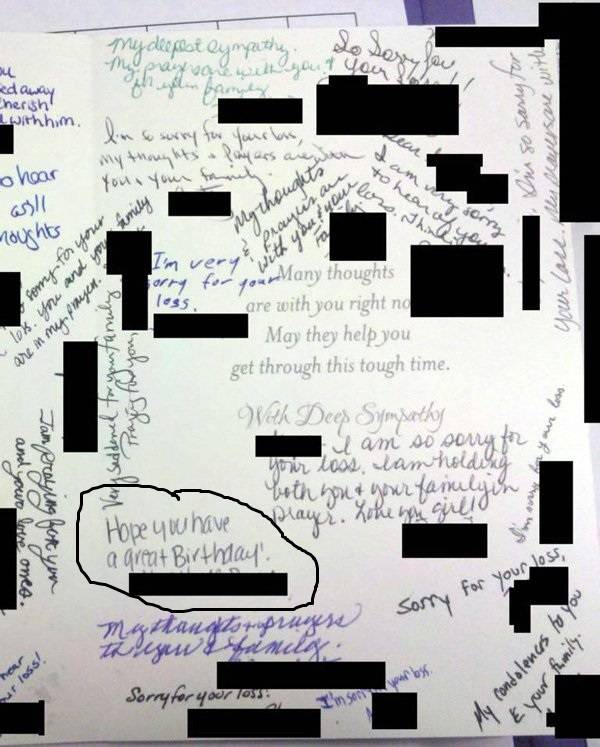 My deepest sympathy.
My prayers are with you &
your family
So Sorry for
your loss!!
ou
ed away
cherish
with him.
I'm so sorry for your loss,
my thoughts & Prayers are with
You & your family.
Dear
I am very sorry
to hear of your
loss.
I'm so sorry for
your loss. My prayers are with
o hear
as I'll
noughts
My thoughts
& prayers are
with you & your
sorry for your
loss. you and your family
are in my prayers.
I'm very
sorry for your
loss.
Many thoughts
are with you right no
May they help you
get through this tough time.
With Deep Sympathy
Very saddened for your family.
Praying for you,
I am so sorry for
your loss. I am holding
both you & your family in
prayer. Love you girl!
I'm sorry for your loss
I am praying for you
and your love ones.
Hope you have
a great Birthday!
My thoughts & prayers
to you & family.
Sorry for your loss,
My condolences to you
& your family.
hear
ur loss!
Sorry for your loss!
I'm sorry your loss.